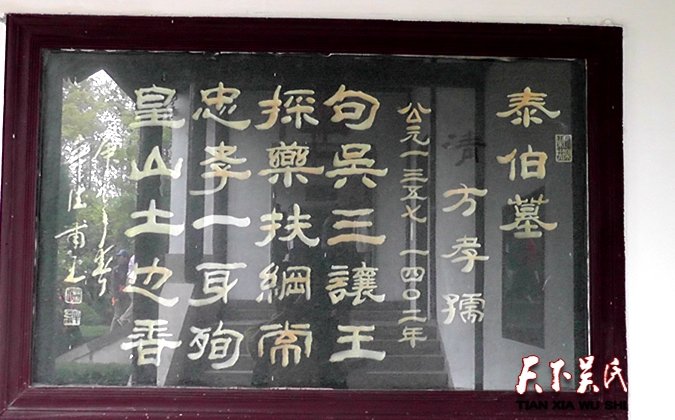 泰伯墓
清 方孝孺
公元一三五七 一四〇二年
句吴三讓王
採藥扶綱常
忠孝一身殉
皇山土也香
天下吴氏
TIAN XIA WU SHI